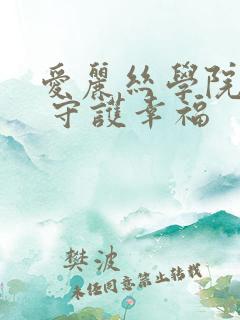 愛麗絲學院
守護幸福
樊波
未任同意禁止转载